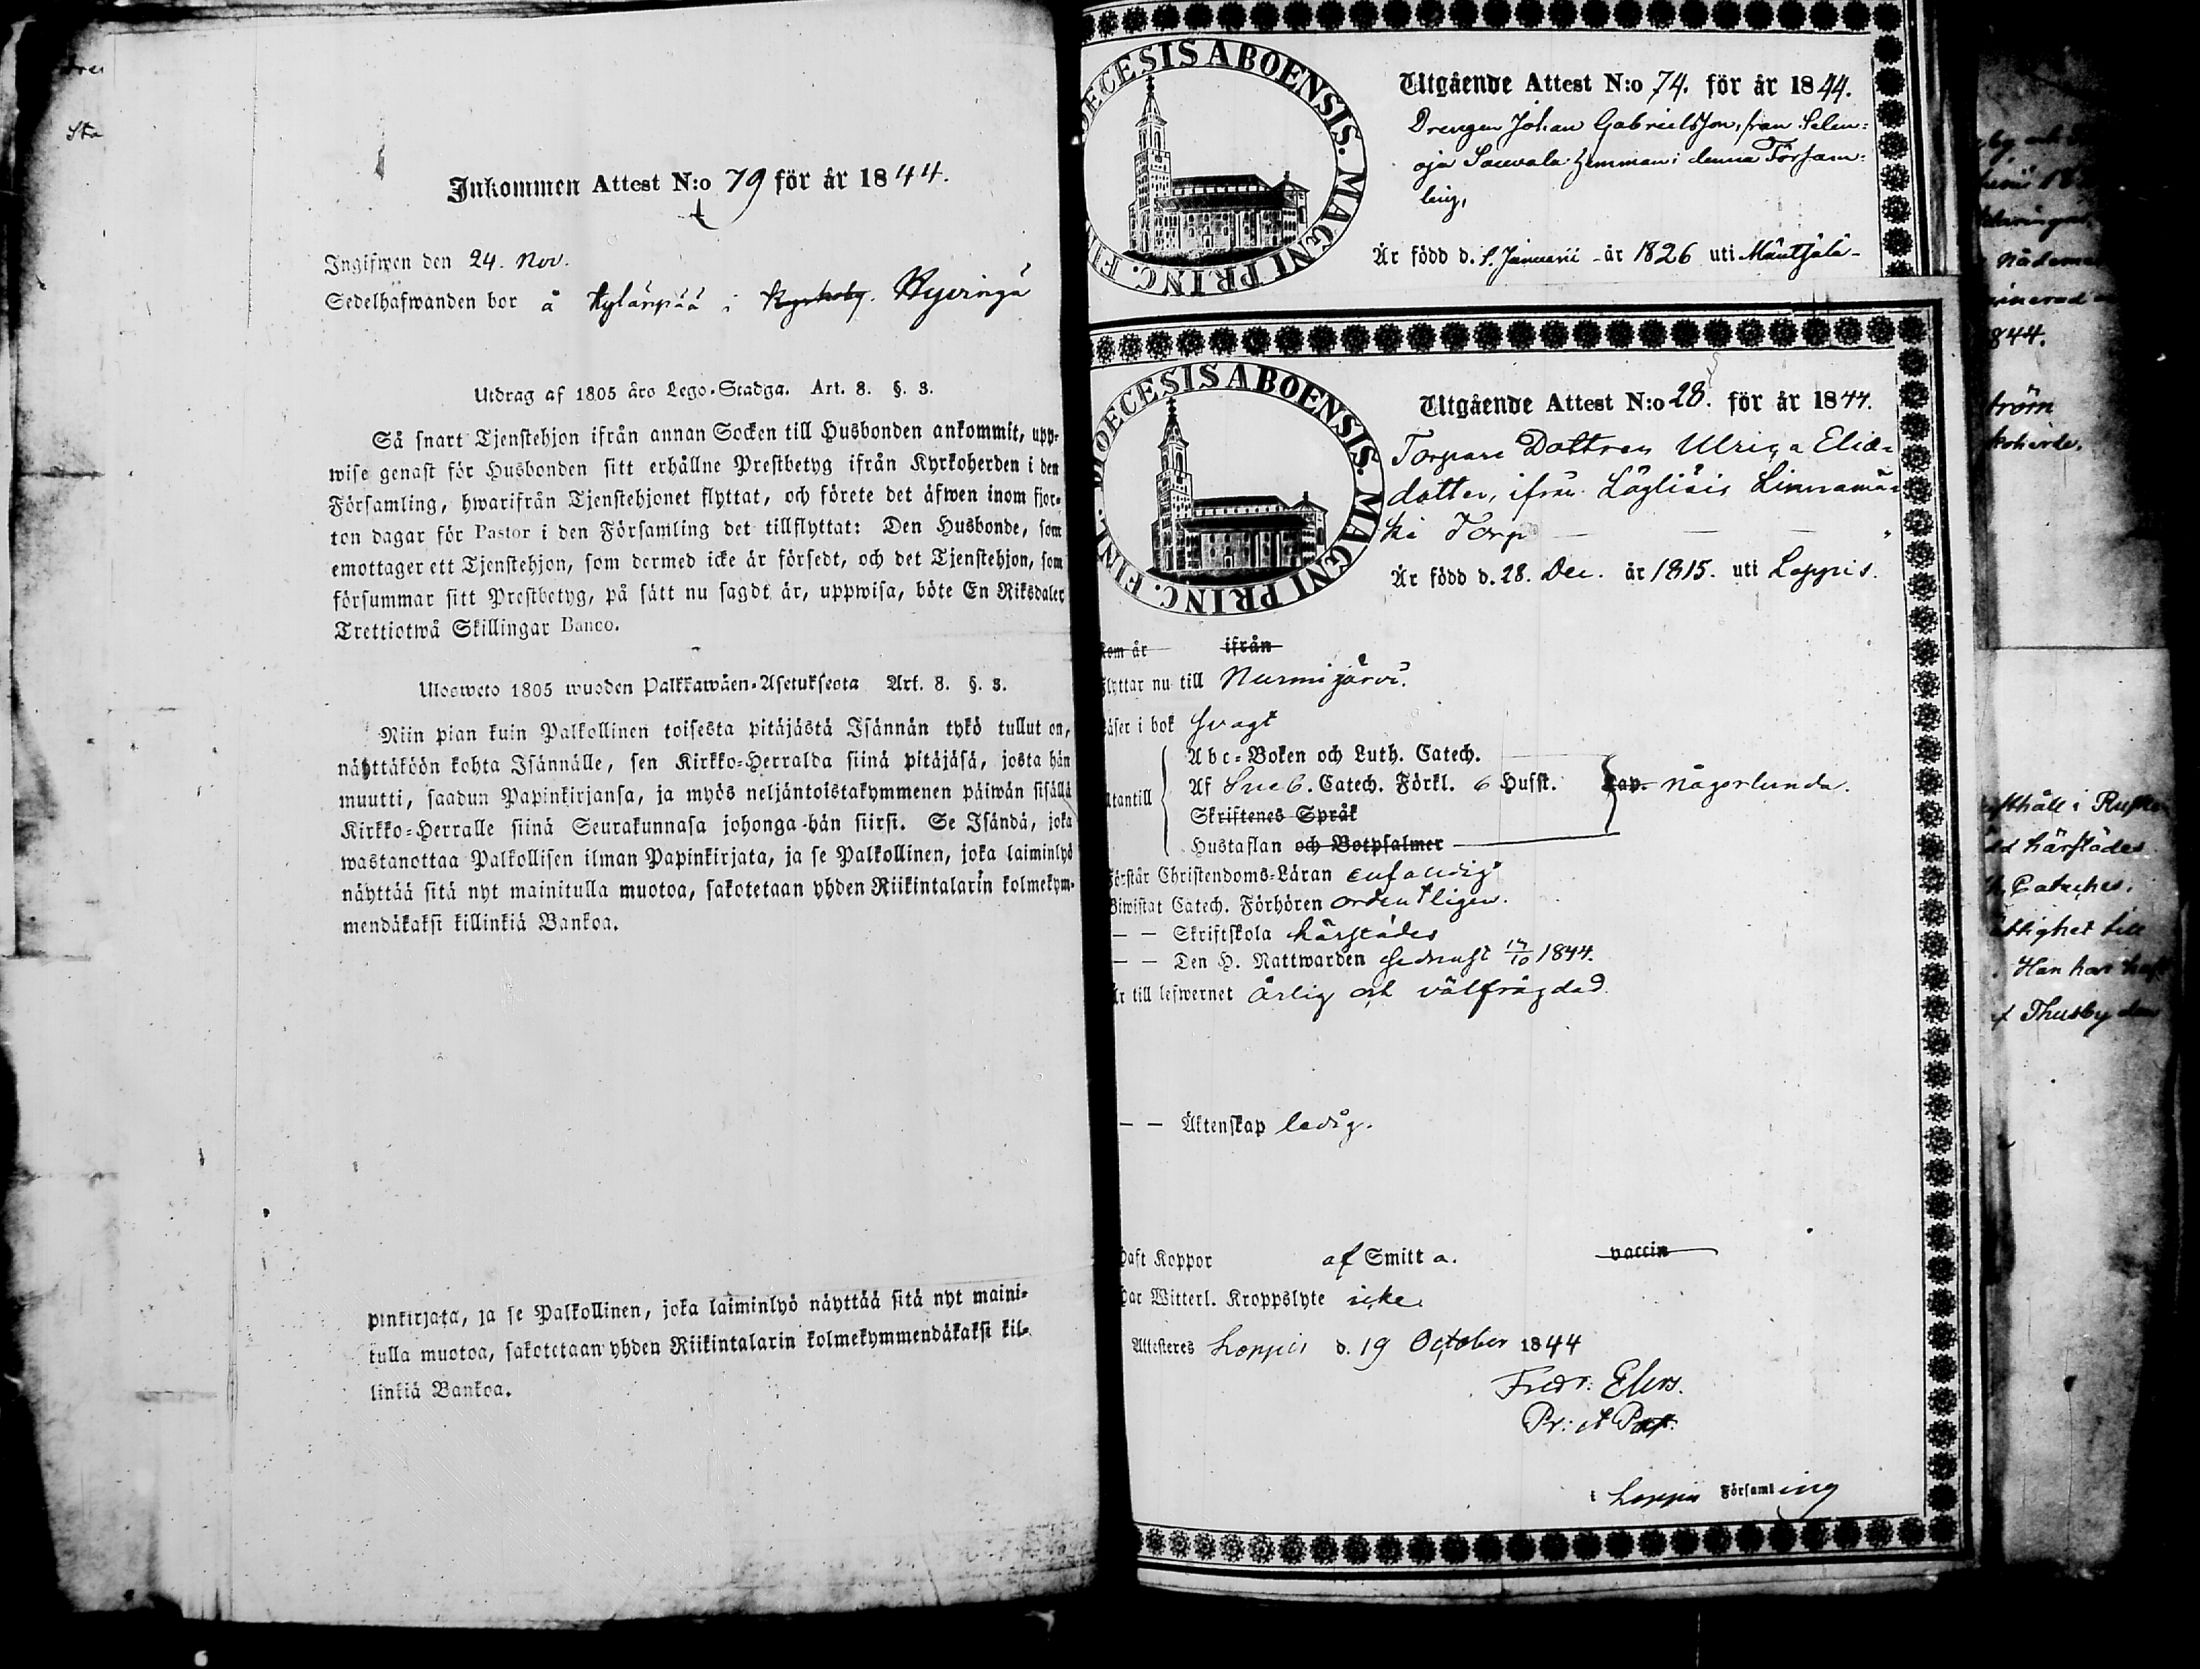 Inkommen Attest N:o 79 för år 1844.
Ingifwen den 24. Nov.
Sedelhafwanden bor å Kylänpää i Kyrkoby. Hyvingä
Utdrag af 1805 års Lego-Stadga. Art. 8. §. 3.
Så snart Tjenstehjon ifrån annan Socken till Husbonden ankommit, upp-
wise genast för Husbonden sitt erhållne Prestbetyg ifrån Kyrkoherden i den
Församling, hwarifrån Tjenstehjonet flyttat, och förete det äfwen inom fjor-
ton dagar för Pastor i den Församling det tillflyttat: Den Husbonde, som
emottager ett Tjenstehjon, som dermed icke är försedt, och det Tjenstehjon, som
försummar sitt Prestbetyg, på sätt nu sagdt är, uppwisa, böte En Riksdaler
Trettiotwå Skillingar Banco.
Ulosweto 1805 wuoden Palkkawäen-Asetuksesta Art. 8. §. 3.
Niin pian kuin Palkollinen toisesta pitäjästä Isännän tykö tullut on,
näyttäköön kohta Isännälle, sen Kirkko-Herralda siinä pitäjäsä, josta hän
muutti, saadun Papinkirjansa, ja myös neljäntoistakymmenen päiwän sisällä
Kirkko-Herralle siinä Seurakunnasa johonga hän siirsi. Se Isändä, joka
wastanottaa Palkollisen ilman Papinkirjata, ja se Palkollinen, joka laiminlyö
näyttää sitä nyt mainitulla muotoa, sakotetaan yhden Riikintalarin kolmekym-
mendäkaksi killinkiä Bankoa.
pinkirjata, ja se Palkollinen, joka laiminlyö näyttää sitä nyt maini-
tulla muotoa, sakotetaan yhden Riikintalarin kolmekymmendäkaksi kil-
linkiä Bankoa.
DIOECESIS ABOENSIS. MAGNI PRINC. FIN
Utgående Attest N:o 74. för år 1844.
Drengen Johan Gabrielsson, från Selen-
oja Sauvala hemman i denna Försam-
ling,
Är född d. 5. Januarii - år 1826 uti Mäntsälä -
DIOECESIS ABOENSIS. MAGNI PRINC. FINL.
Utgående Attest N:o 28. för år 1844.
Torpare Dottren Ulrica Elias-
dotter, ifrån Läyliäis Linnamä-
ki Torp
Är född d. 28. Dec. år 1815. uti Loppis.
Kom år ifrån
Flyttar nu till Nurmijärvi.
Läser i bok svagt
Utantill
Abc-Boken och Luth. Catech.
Af Sveb. Catech. Förkl. 6 Hufst. någorlunda.
Skriftenes Språk
Hustaflan och Botpsalmer
Förstår Christendoms-Läran enfaldigt
Biwistat Catech. Förhören ordentligen.
— — Skriftskola härstädes
— — Den H. Nattwarden sednast 17/10 1844.
Är till lefwernet ärlig och välfrägdad.
— — Äktenskap ledig.
Haft Koppor af Smitta. vaccin
Har Witterl. Kroppslyte icke.
Attesteres Loppis d. 19 October 1844
Fredr: Elers.
Pr: et Past:
i Loppis Församling
844.
ström
koherde.
härstädes
Cateches.
. Han har haft
Thusby den